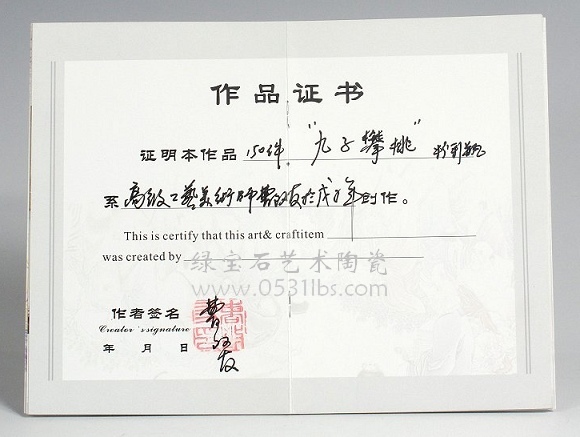 作品证书
证明本作品 150件 "九子攀桃" 粉彩瓶
系 高级工艺美术师 于戊子年创作。
This is certify that this art& craftitem
was created by
绿宝石艺术陶瓷
www.0531lbs.com
作者签名
Creator 's signature
年 月 日